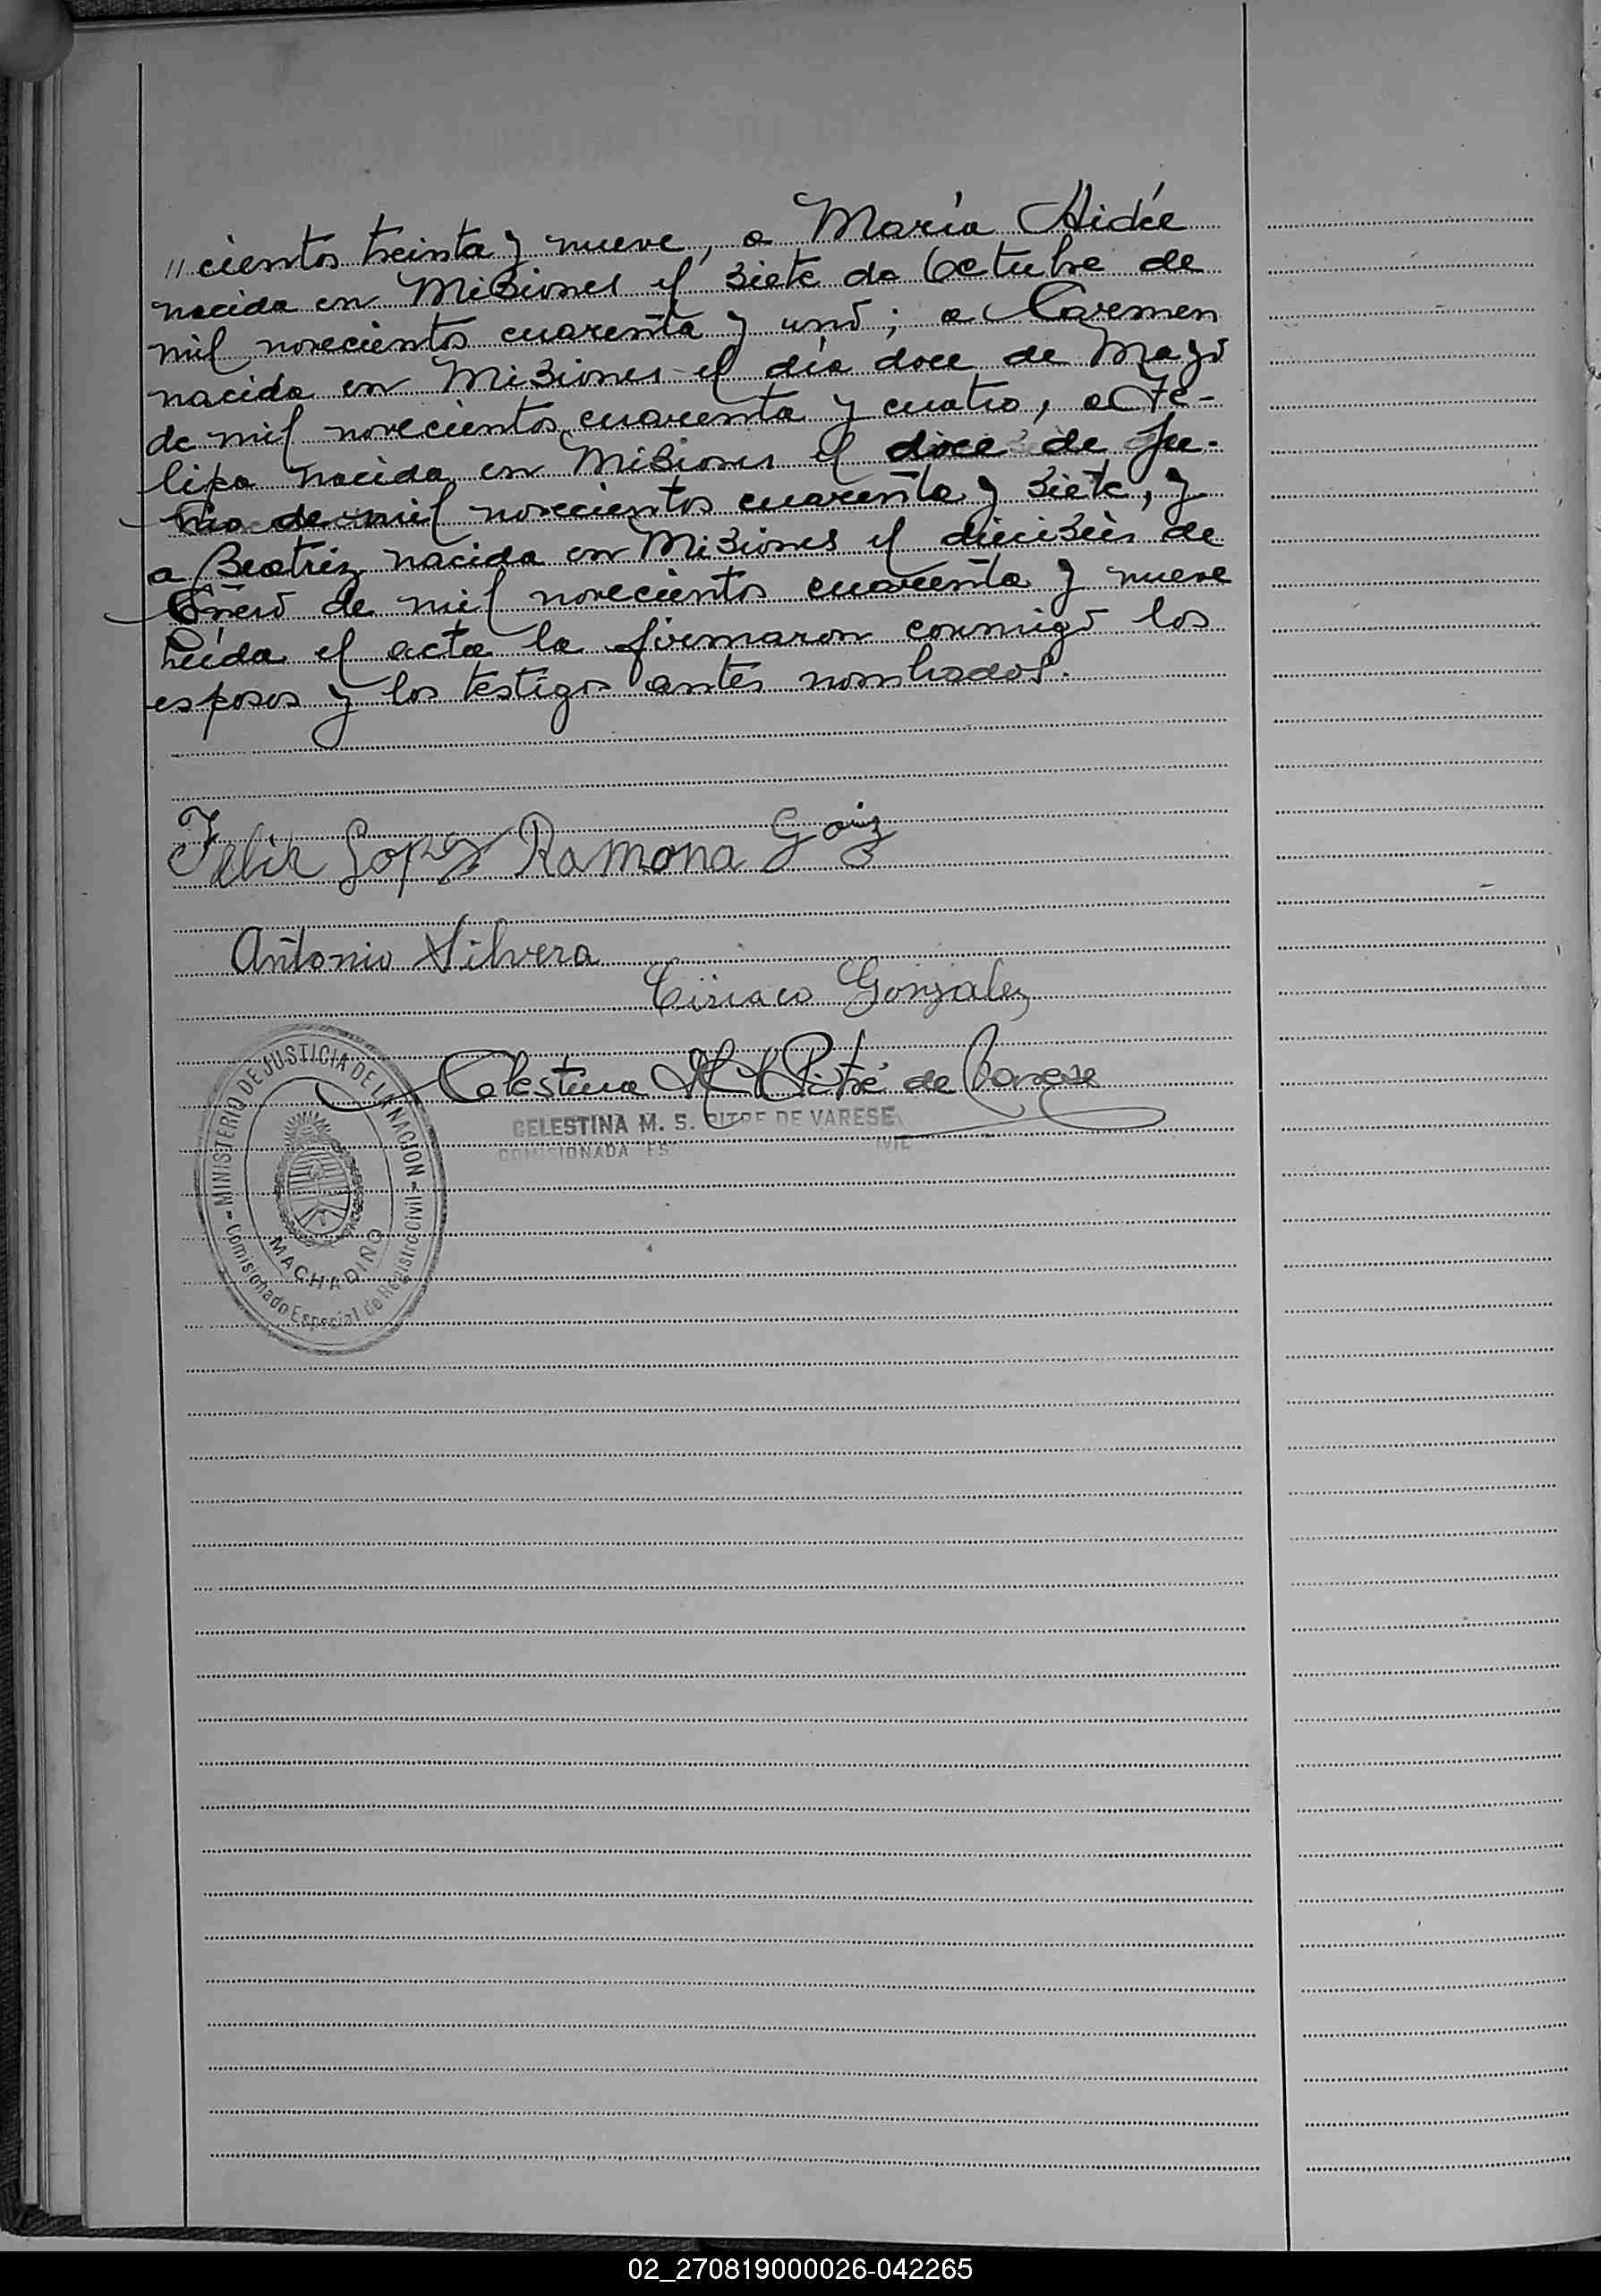 "cientos treinta y nueve, a María Aidée
nacida en Misiones el siete de Octubre de
mil novecientos cuarenta y uno; a Carmen
nacida en Misiones el día doce de Mayo
de mil novecientos cuarenta y cuatro, a Fe-
lipa nacida en Misiones el doce de Ju-
de mil novecientos cuarenta y siete, y
a Beatriz nacida en Misiones el dieciséis de
Enero de mil novecientos cuarenta y nueve
Leída el acta la firmaron conmigo los
esposos y los testigos antes nombrados.
Felix Lopez Ramona
Antonio Silvera
Ciriaco Gonzalez
Celestina M. S. Pitré de Varese
CELESTINA M. S. PITRE DE VARESE
COMISIONADA ES
IVIL
MINISTERIO DE JUSTICIA DE LA NACION
Comisionado Especial de Registro Civil
MACHADINO
02_270819000026-042265